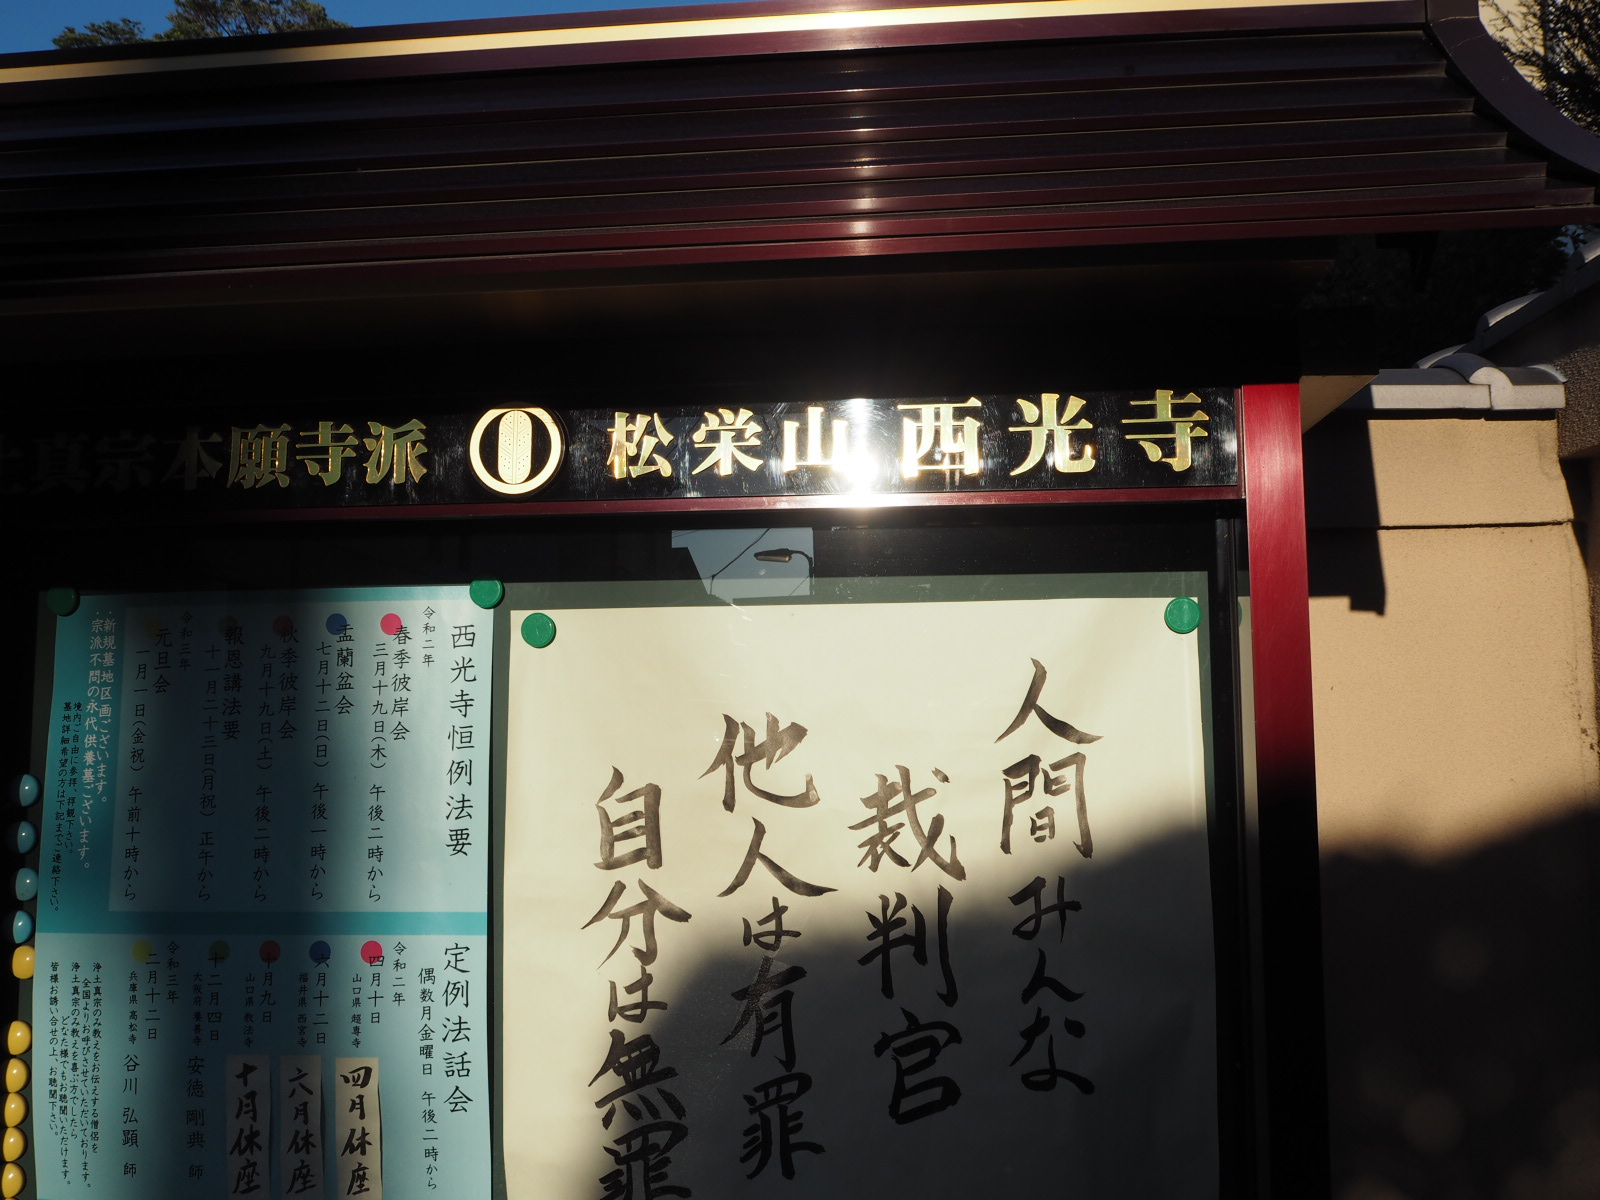 土真宗本願寺派
松栄山西光寺
人間みんな
裁判官
他人は有罪
自分は無罪
西光寺恒例法要
令和二年
春季彼岸会
三月十九日(木) 午後二時から
盂蘭盆会
七月十二日(日) 午後一時から
秋季彼岸会
九月十九日(土) 午後二時から
報恩講法要
十一月二十三日(月祝) 正午から
令和三年
元旦会
一月一日(金祝) 午前十時から
新規墓地区画ございます。
宗派不問の永代供養墓ございます。
境内ご自由に参拝、拝観下さい。
墓地詳細希望の方は下記までご連絡下さい。
定例法話会
偶数月金曜日 午後二時から
令和二年
四月十日
山口県 超専寺
四月休座
六月十二日
福井県 西宮寺
六月休座
十月九日
山口県 教法寺
十月休座
十二月四日
安徳 剛典 師
令和三年
二月十二日
兵庫県 高松寺
谷川 弘顕 師
浄土真宗のみ教えをお伝えする僧侶を
全国よりお呼びさせていただいております。
浄土真宗のみ教えを喜ぶ方でしたら
どなた様でもお聴聞いただけます。
皆様お誘い合せの上、お聴聞下さい。